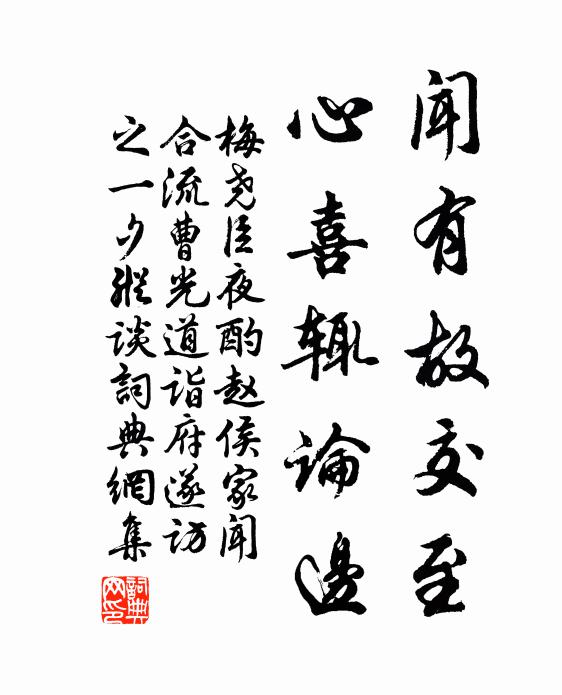 闻有故交至
心喜辄論邊
梅尧臣夜酌赵侯家闻
合流曹光道诣府遂访
之一夕縱谈詞典網集
詞典网印